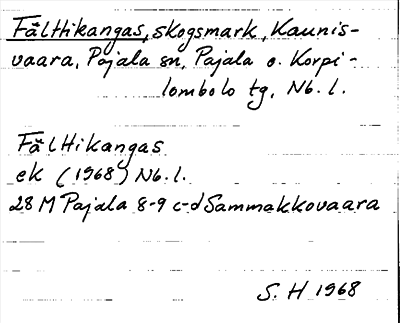 Fälttikangas, skogsmark, Kaunis-
vaara, Pajala sn, Pajala o. Korpi-
lombolo tg, Nb. l.
Fälttikangas
ek (1968) Nb. l.
28 M Pajala 8-9 c-d Sammakkovaara
S. H 1968